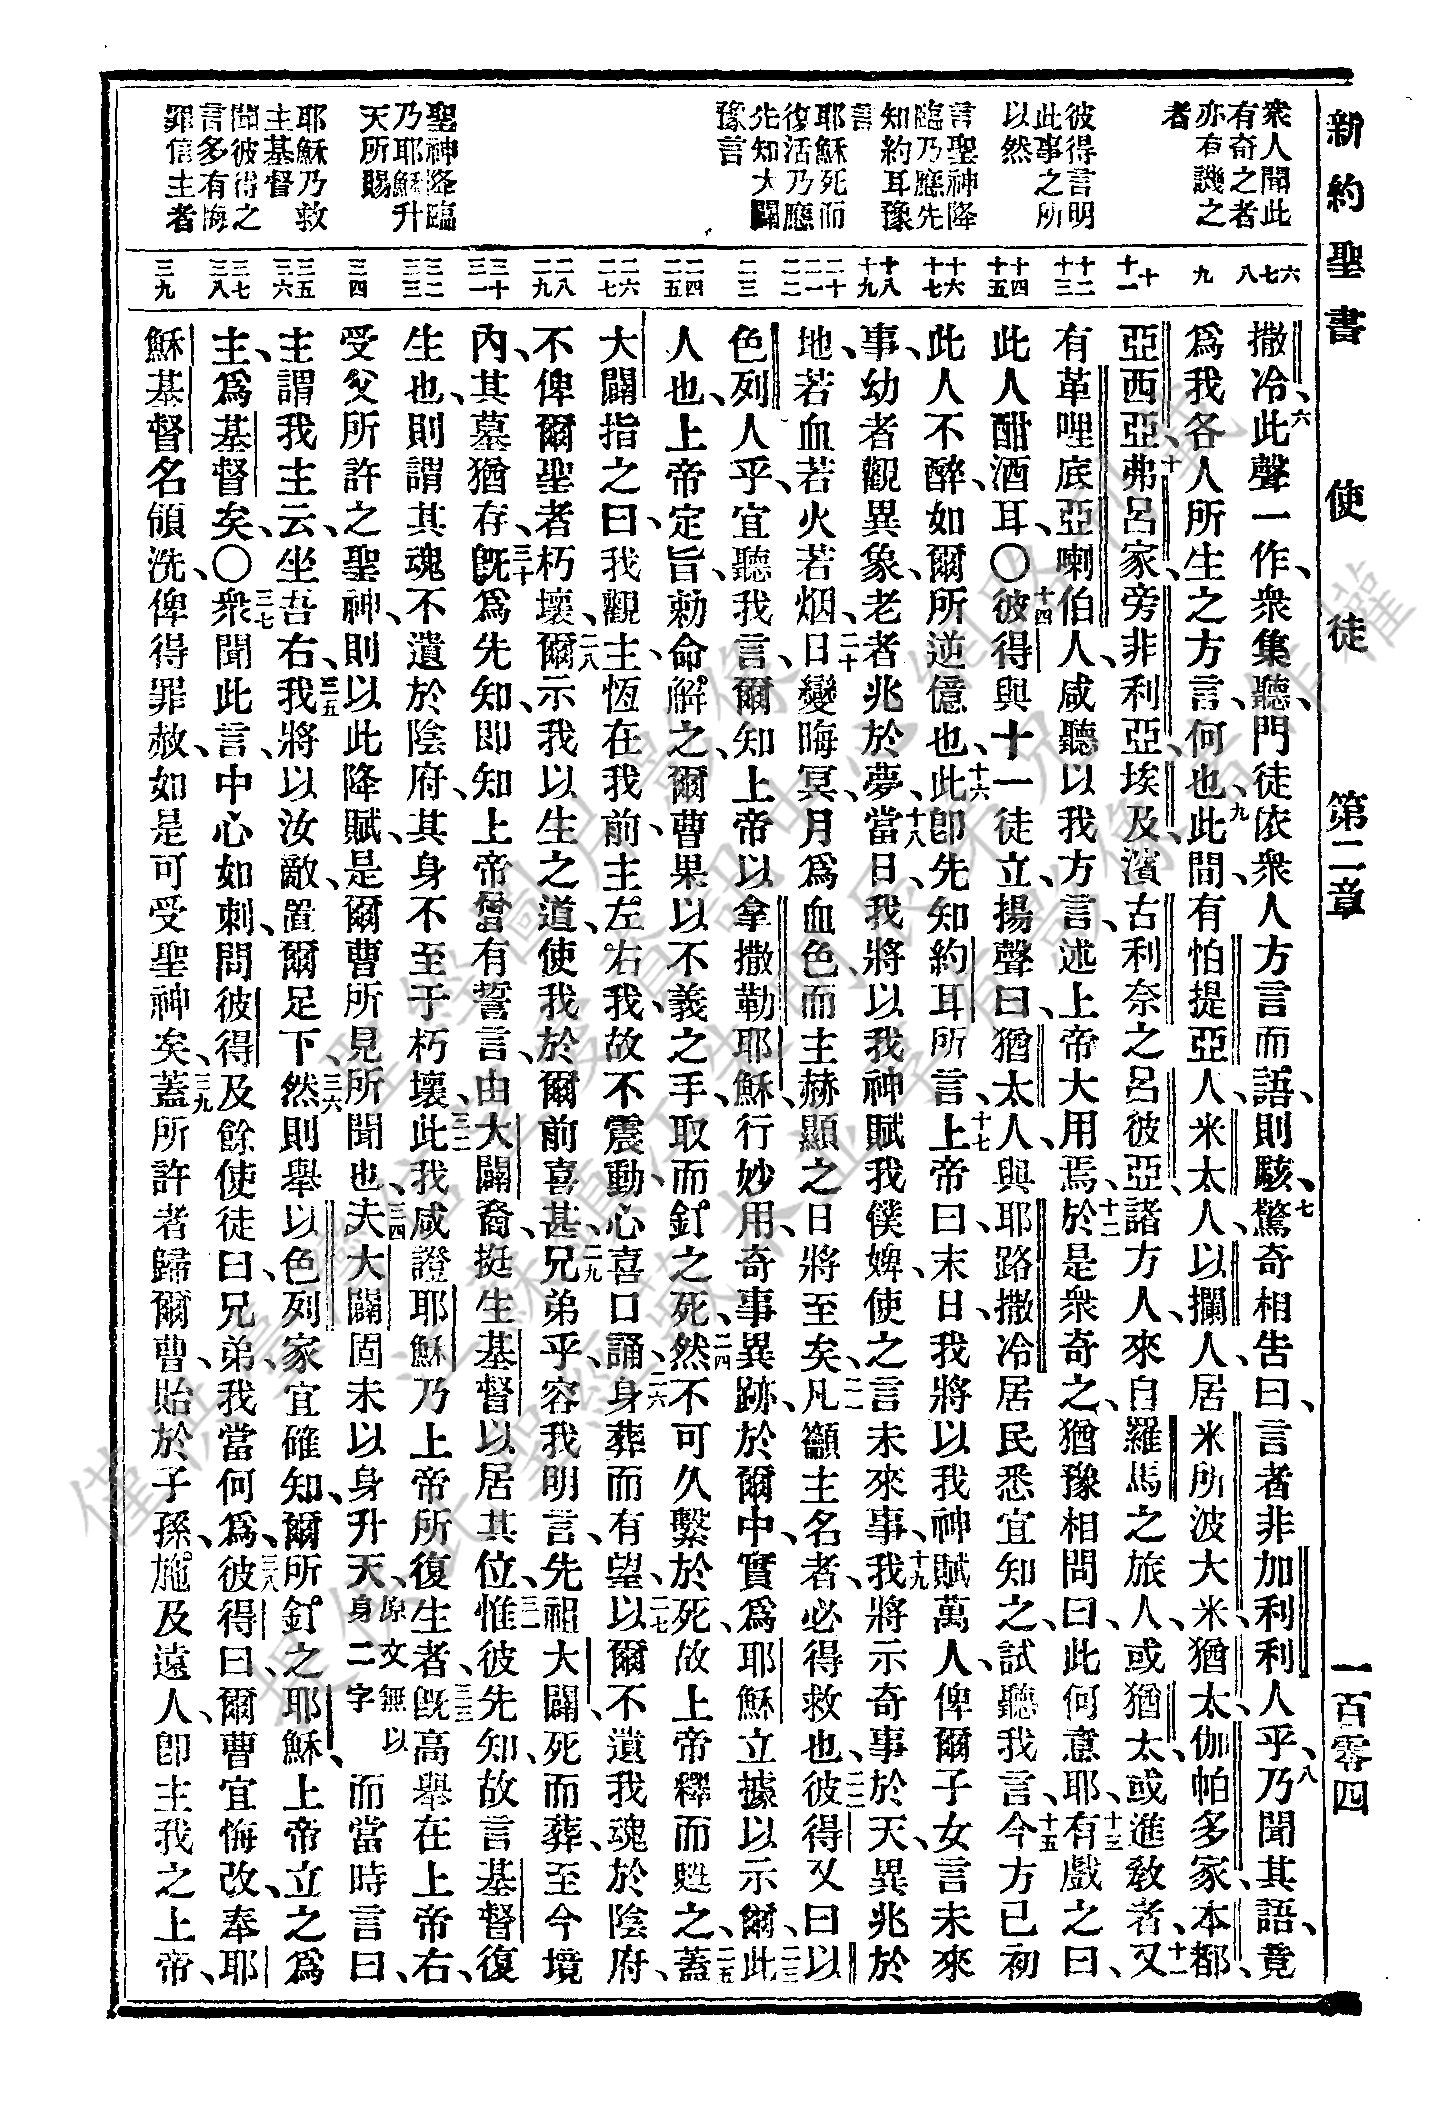 新約聖書 使徒 第二章 一百零四
衆人聞此
有奇之者
亦有譏之
者
彼得言明
此事之所
以然
言聖神降
臨乃應先
知約耳豫
言
耶穌死而
復活乃應
先知大闢
豫言
聖神降臨
乃耶穌升
天所賜
耶穌乃救
主基督
聞彼得之
言多有悔
罪信主者
六
七
八
九
十
十一
十二
十三
十四
十五
十六
十七
十八
十九
二十
二一
二二
二三
二四
二五
二六
二七
二八
二九
三十
三一
三二
三三
三四
三五
三六
三七
三八
三九
撒冷、六此聲一作、衆集聽、門徒依衆人方言而語、則駭、七驚奇相告曰、言者非加利利人乎、八乃聞其語、竟
爲我各人所生之方言、何也、九此間、有怕提亞人、米太人、以攔人、居米所波大米、猶太、伽帕多家、本都、
亞西亞、十弗呂家、旁非利亞、埃及、濱古利奈之呂彼亞、諸方人、來自羅馬之旅人、或猶太、或進教者、又十一
有革哩底、亞喇伯人、咸聽以我方言、述上帝大用焉、十二於是衆奇之、猶豫相問曰、此何意耶、十三有戲之曰、
此人酣酒耳、〇十四彼得與十一徒立、揚聲曰、猶太人、與耶路撒冷居民悉宜知之、試聽我言、十五今方已初
此人不醉、如爾所逆億也、十六此卽先知約耳所言、十七上帝曰、末日、我將以我神賦萬人、俾爾子女言未來
事、幼者觀異象、老者兆於夢、十八當日、我將以我神賦我僕婢、使之言未來事、十九我將示奇事於天、異兆於
地、若血若火若烟、二十日變晦冥、月爲血色、而主赫顯之日將至矣、二一凡籲主名者、必得救也、二二彼得又曰、以
色列人乎、宜聽我言、爾知上帝以拿撒勒耶穌、行妙用奇事異跡、於爾中、實爲耶穌立據以示爾、二三此
人也、上帝定旨、勅命解之、爾曹果以不義之手、取而釘之死、二四然不可久繫於死、故上帝釋而甦之、二五蓋
大闢指之曰、我觀主、恆在我前、主左右我、故不震動、二六心喜口誦、身葬而有望、二七以爾不遺我魂於陰府、
不俾爾聖者朽壞、二八爾示我以生之道、使我於爾前喜甚、二九兄弟乎、容我明言、先祖大闢、死而葬、至今境
內、其墓猶存、三十旣爲先知、卽知上帝嘗有誓言、由大闢裔、挺生基督、以居其位、三一惟彼先知、故言基督復
生也、則謂其魂不遺於陰府、其身不至于朽壞、三二此我咸證、耶穌乃上帝所復生者、三三旣高舉在上帝右、
受父所許之聖神、則以此降賦、是爾曹所見所聞也、三四夫大闢固未以身升天、原文無以身二字而當時言曰、
主謂我主云、坐吾右、三五我將以汝敵、置爾足下、三六然則舉以色列家、宜確知、爾所釘之耶穌、上帝立之爲
主、爲基督矣、〇三七衆聞此言、中心如刺、問彼得及餘使徒曰、兄弟、我當何爲、三八彼得曰、爾曹宜悔改、奉耶
穌基督名領洗、俾得罪赦、如是可受聖神矣、三九蓋所許者歸爾曹、貽於子孫、施及遠人、卽主我之上帝、